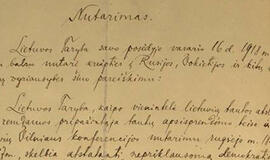 Nutarimas.
Lietuvos Taryba savo posėdyje vasario 16 d. 1918 m
balsu nutarė kreiptis į Rusijos, Vokietijos ir kitų
vyriausybes šiuo pareiškimu:
Lietuvos Taryba, kaipo vienintelė lietuvių tautos
tautų apsisprendimo teise
Vilniaus konferencijos nutarimu rugsėjo m.
skelbia atstatanti nepriklausomą